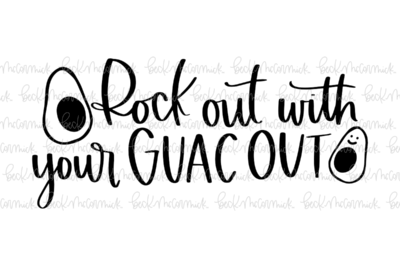 Rock out with
your GUAC OUT